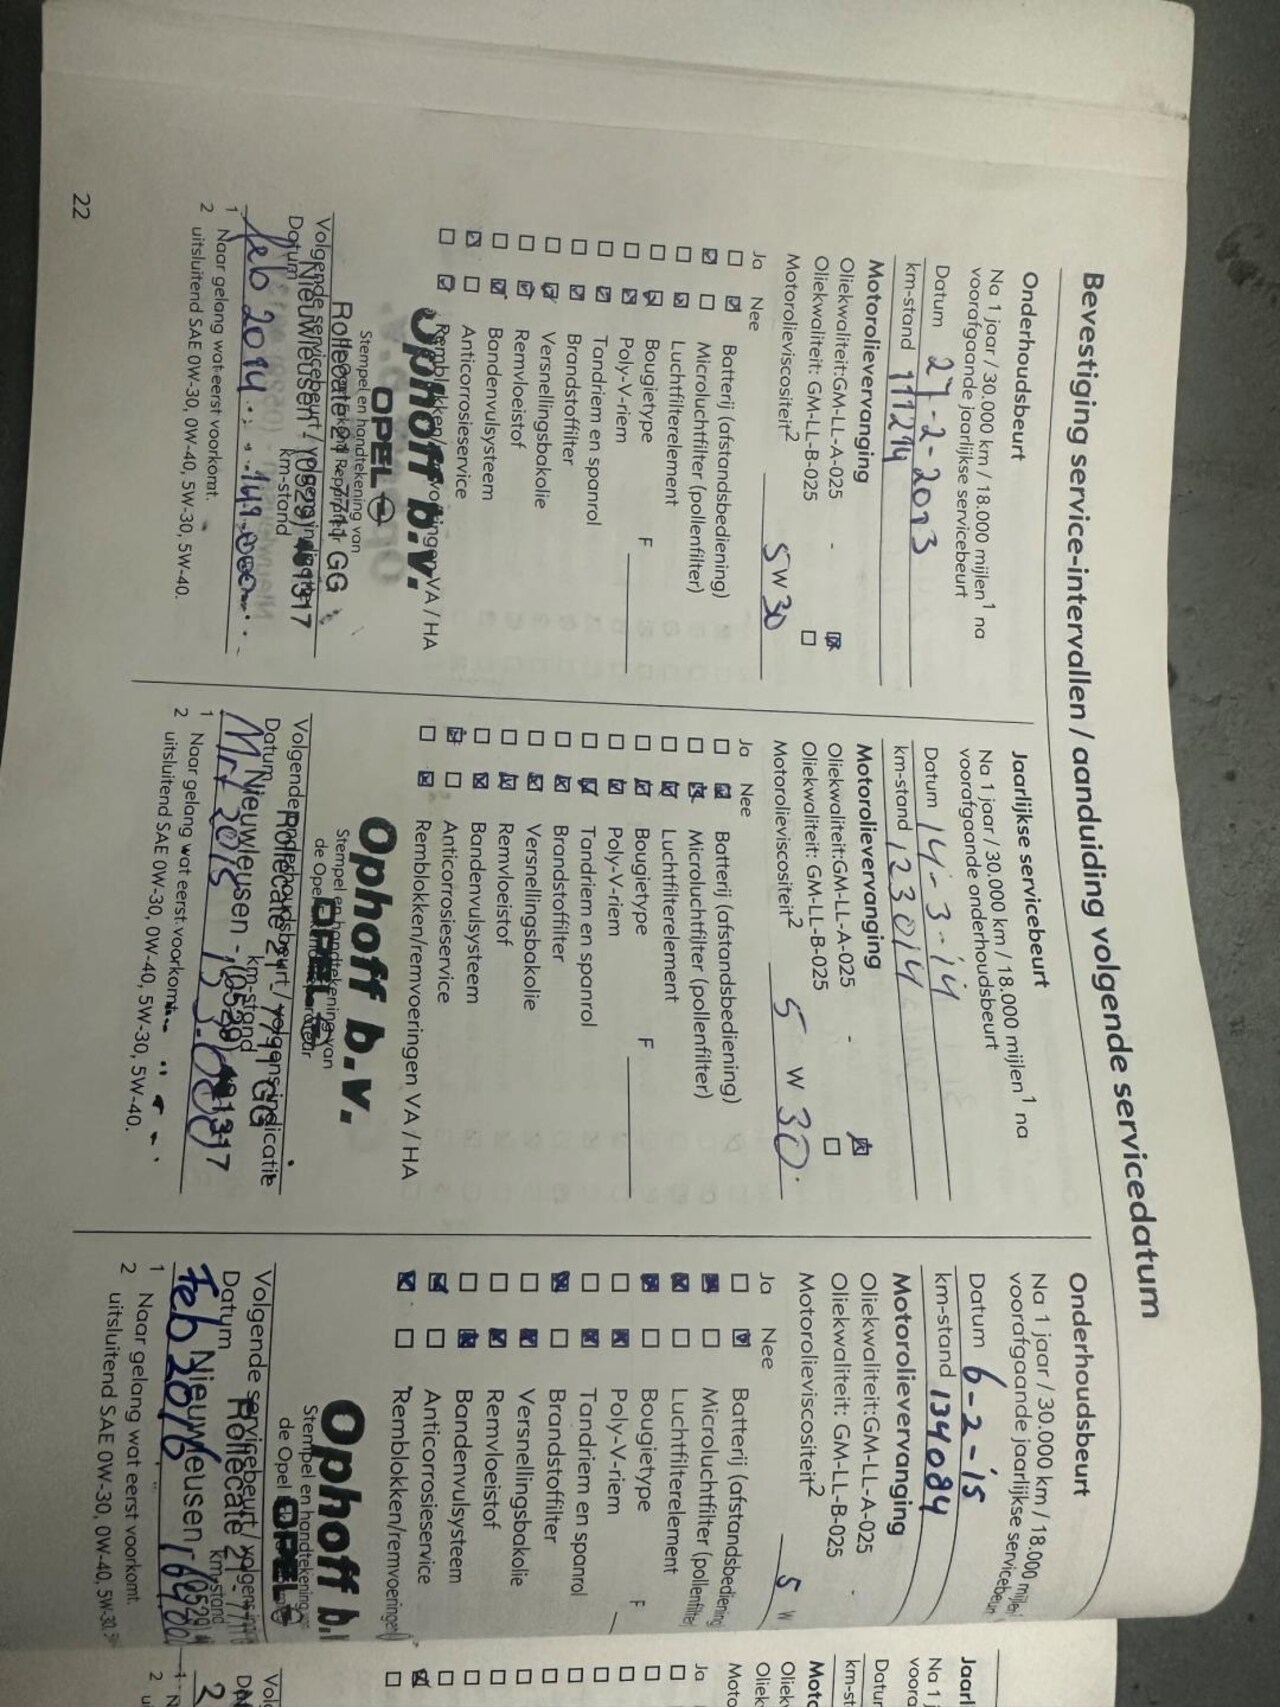 Bevestiging service-intervallen / aanduiding volgende servicedatum
Onderhoudsbeurt
Na 1 jaar / 30.000 km / 18.000 mijlen¹ na
voorafgaande jaarlijkse servicebeurt
Datum 27-2-2013
km-stand 117294
Motorolievervanging
Oliekwaliteit:GM-LL-A-025 -
Oliekwaliteit: GM-LL-B-025
Motorolieviscositeit² 5W30
Ja Nee
Batterij (afstandsbediening)
Microluchtfilter (pollenfilter)
Luchtfilterelement
Bougietype F
Poly-V-riem
Tandriem en spanrol
Brandstoffilter
Versnellingsbakolie
Remvloeistof
Bandenvulsysteem
Anticorrosieservice
Remblokken/remvoeringen VA / HA
Ophoff b.v.
OPEL
Stempel en handtekening van
Rollecate 21 - 7711 GG
Nieuwleusen (0529) 481317
Volgende servicebeurt / volgens indicatie
Datum km-stand
feb 2014 149.000
1 Naar gelang wat eerst voorkomt.
2 uitsluitend SAE 0W-30, 0W-40, 5W-30, 5W-40.
22
Jaarlijkse servicebeurt
Na 1 jaar / 30.000 km / 18.000 mijlen¹ na
voorafgaande onderhoudsbeurt
Datum 14-3-14
km-stand 123014
Motorolievervanging
Oliekwaliteit:GM-LL-A-025 -
Oliekwaliteit: GM-LL-B-025
Motorolieviscositeit² 5 W 30.
Ja Nee
Batterij (afstandsbediening)
Microluchtfilter (pollenfilter)
Luchtfilterelement
Bougietype F
Poly-V-riem
Tandriem en spanrol
Brandstoffilter
Versnellingsbakolie
Remvloeistof
Bandenvulsysteem
Anticorrosieservice
Remblokken/remvoeringen VA / HA
Ophoff b.v.
Stempel en handtekening van
de Opel
OPEL
Rollecate 21 7711 GG
Nieuwleusen - (0529) 481317
Volgende onderhoudsbeurt / volgens indicatie
Datum km-stand
Mrt 2015 153.000
1 Naar gelang wat eerst voorkomt.
2 uitsluitend SAE 0W-30, 0W-40, 5W-30, 5W-40.
Onderhoudsbeurt
Na 1 jaar / 30.000 km / 18.000 mijlen¹
voorafgaande jaarlijkse servicebeur
Datum 6-2-'15
km-stand 134084
Motorolievervanging
Oliekwaliteit:GM-LL-A-025
Oliekwaliteit: GM-LL-B-025 -
Motorolieviscositeit² 5 W
Ja Nee
Batterij (afstandsbediening
Microluchtfilter (pollenfilter
Luchtfilterelement
Bougietype F
Poly-V-riem
Tandriem en spanrol
Brandstoffilter
Versnellingsbakolie
Remvloeistof
Bandenvulsysteem
Anticorrosieservice
Remblokken/remvoeringen
Ophoff b.
Stempel en handtekening
de Opel
OPEL
Rollecate 21 - 771
Nieuwleusen (0529)
Volgende servicebeurt / volgens
Datum km-stand
Feb 2016
1 Naar gelang wat eerst voorkomt.
2 uitsluitend SAE 0W-30, 0W-40, 5W-30,
Jaarl
Na 1
voora
Datur
km-st
Moto
Oliek
Oliek
Moto
Ja
Vol
2
1 N
2 ui